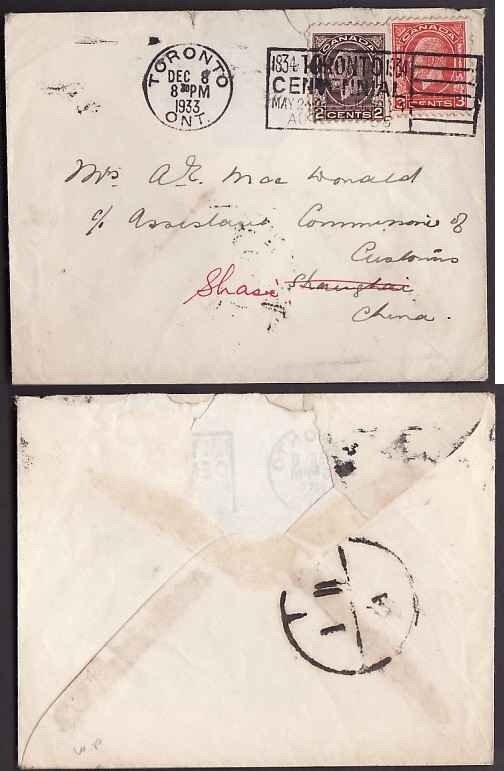 TORONTO
DEC 8
8 30 PM
1933
ONT.
1834 TORONTO 1934
CENTENNIAL
MAY 24
CANADA
2 CENTS 2
CANADA
3 CENTS 3
Mrs A.E. Mac Donald
c/o Assistant Commissioner of
Customs
Shasi Shanghai
China.